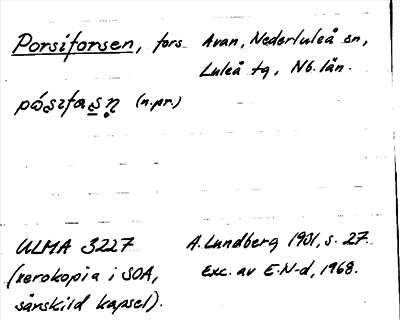 Porsiforsen, fors Avan, Nederluleå sn,
Luleå tg, Nb. län.
(n.pr.)
ULMA 3227 A. Lundberg 1901, s. 27.
(xerokopia i SOA, Exc. av E-N-d, 1968.
särskild kapsel).